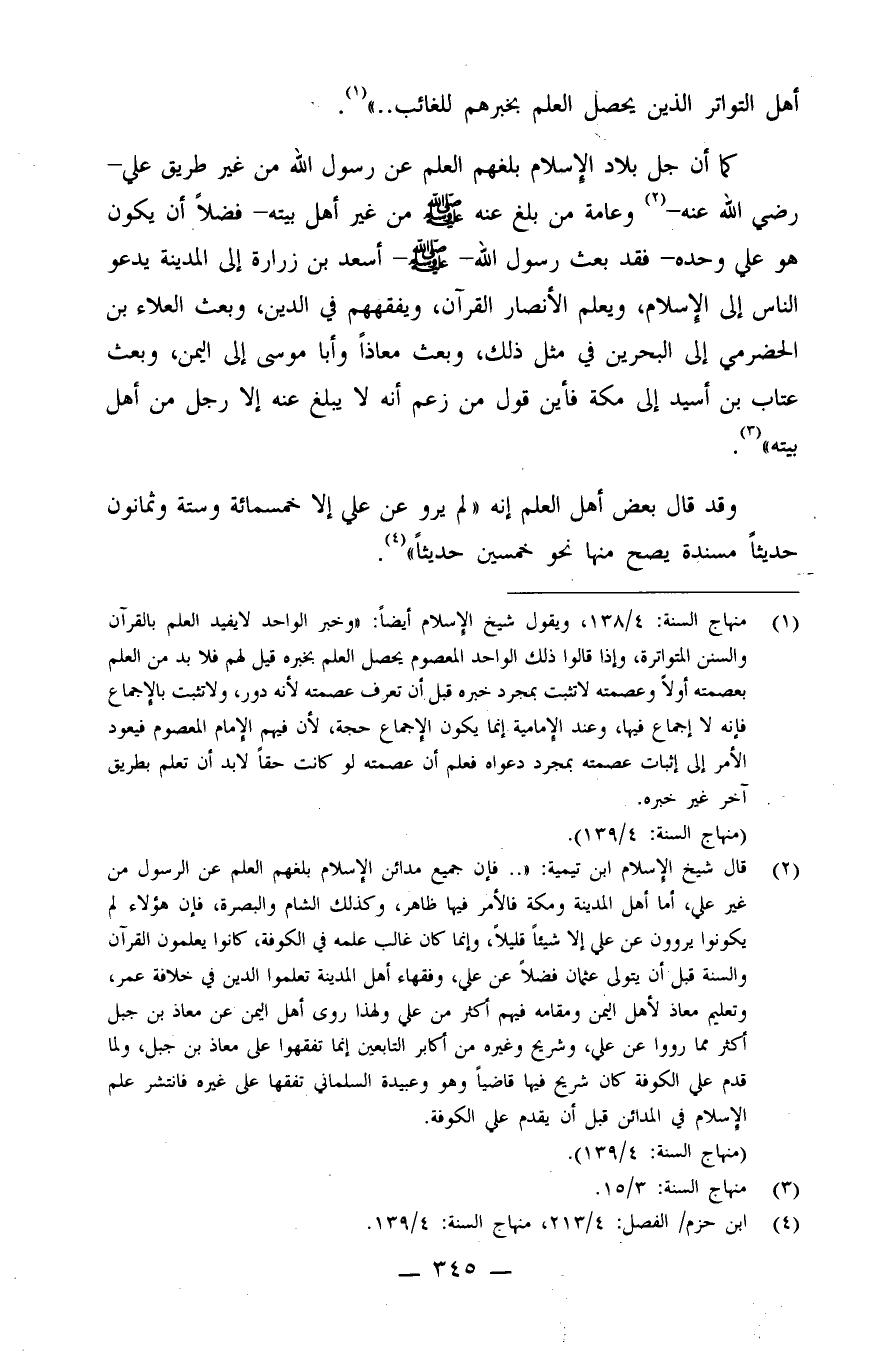 أهل التواتر الذين يحصل العلم بخبرهم للغائب..»(١).
كما أن جل بلاد الإسلام بلغهم العلم عن رسول الله من غير طريق علي–
رضي الله عنه–(٢) وعامة من بلغ عنه ﷺ من غير أهل بيته– فضلاً أن يكون
هو علي وحده– فقد بعث رسول الله– ﷺ– أسعد بن زرارة إلى المدينة يدعو
الناس إلى الإسلام، ويعلم الأنصار القرآن، ويفقههم في الدين، وبعث العلاء بن
الحضرمي إلى البحرين في مثل ذلك، وبعث معاذاً وأبا موسى إلى اليمن، وبعث
عتاب بن أسيد إلى مكة فأين قول من زعم أنه لا يبلغ عنه إلا رجل من أهل
بيته»(٣).
وقد قال بعض أهل العلم إنه «لم يرو عن علي إلا خمسمائة وستة وثمانون
حديثاً مسندة يصح منها نحو خمسين حديثاً»(٤).
(١) منهاج السنة: ١٣٨/٤، ويقول شيخ الإسلام أيضاً: «وخبر الواحد لايفيد العلم بالقرآن
والسنن المتواترة، وإذا قالوا ذلك الواحد المعصوم يحصل العلم بخبره قيل لهم فلا بد من العلم
بعصمته أولاً وعصمته لاتثبت بمجرد خبره قبل أن تعرف عصمته لأنه دور، ولاتثبت بالإجماع
فإنه لا إجماع فيها، وعند الإمامية إنما يكون الإجماع حجة، لأن فيهم الإمام المعصوم فيعود
الأمر إلى إثبات عصمته بمجرد دعواه فعلم أن عصمته لو كانت حقاً لابد أن تعلم بطريق
آخر غير خبره.
(منهاج السنة: ١٣٩/٤).
(٢) قال شيخ الإسلام ابن تيمية: «.. فإن جميع مدائن الإسلام بلغهم العلم عن الرسول من
غير علي، أما أهل المدينة ومكة فالأمر فيها ظاهر، وكذلك الشام والبصرة، فإن هؤلاء لم
يكونوا يروون عن علي إلا شيئاً قليلاً، وإنما كان غالب علمه في الكوفة، كانوا يعلمون القرآن
والسنة قبل أن يتولى عثمان فضلاً عن علي، وفقهاء أهل المدينة تعلموا الدين في خلافة عمر،
وتعليم معاذ لأهل اليمن ومقامه فيهم أكثر من علي ولهذا روى أهل اليمن عن معاذ بن جبل
أكثر مما رووا عن علي، وشريح وغيره من أكابر التابعين إنما تفقهوا على معاذ بن جبل، ولما
قدم علي الكوفة كان شريح فيها قاضياً وهو وعبيدة السلماني تفقها على غيره فانتشر علم
الإسلام في المدائن قبل أن يقدم علي الكوفة.
(منهاج السنة: ١٣٩/٤).
(٣) منهاج السنة: ١٥/٣.
(٤) ابن حزم/ الفصل: ٢١٣/٤، منهاج السنة: ١٣٩/٤.
— ٣٤٥ —